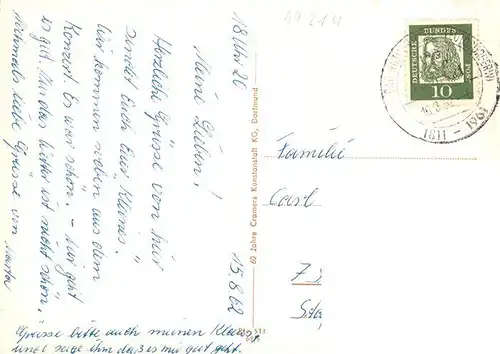 49 214
18 Uhr 20
15.8.62
Meine Lieben!
Herzliche Grüsse von hier
sendet Euch Eure Kleines.
Wir kommen soeben aus dem
Konzert. Es war schön. - Mir geht
es gut. Nur das Wetter ist nicht schön.
Nochmals liebe Grüsse von
Grüsse bitte auch meinen Klaus
und sage ihm daß es mir gut geht.
60 Jahre Cramers Kunstanstalt KG, Dortmund
DEUTSCHE BUNDES POST
10
1811 - 1961
Familie
Carl